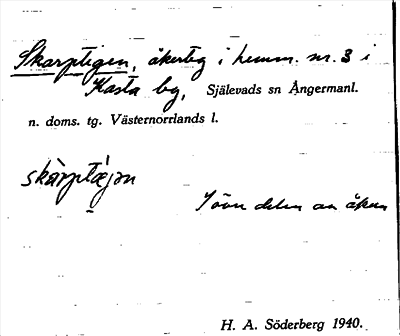 Skarptegen, åkerteg i hemm. nr. 3 i
Kasta by, Själevads sn Ångermanl.
n. doms. tg. Västernorrlands l.
skàrptèjən
I övre delen av åkern
H. A. Söderberg 1940.